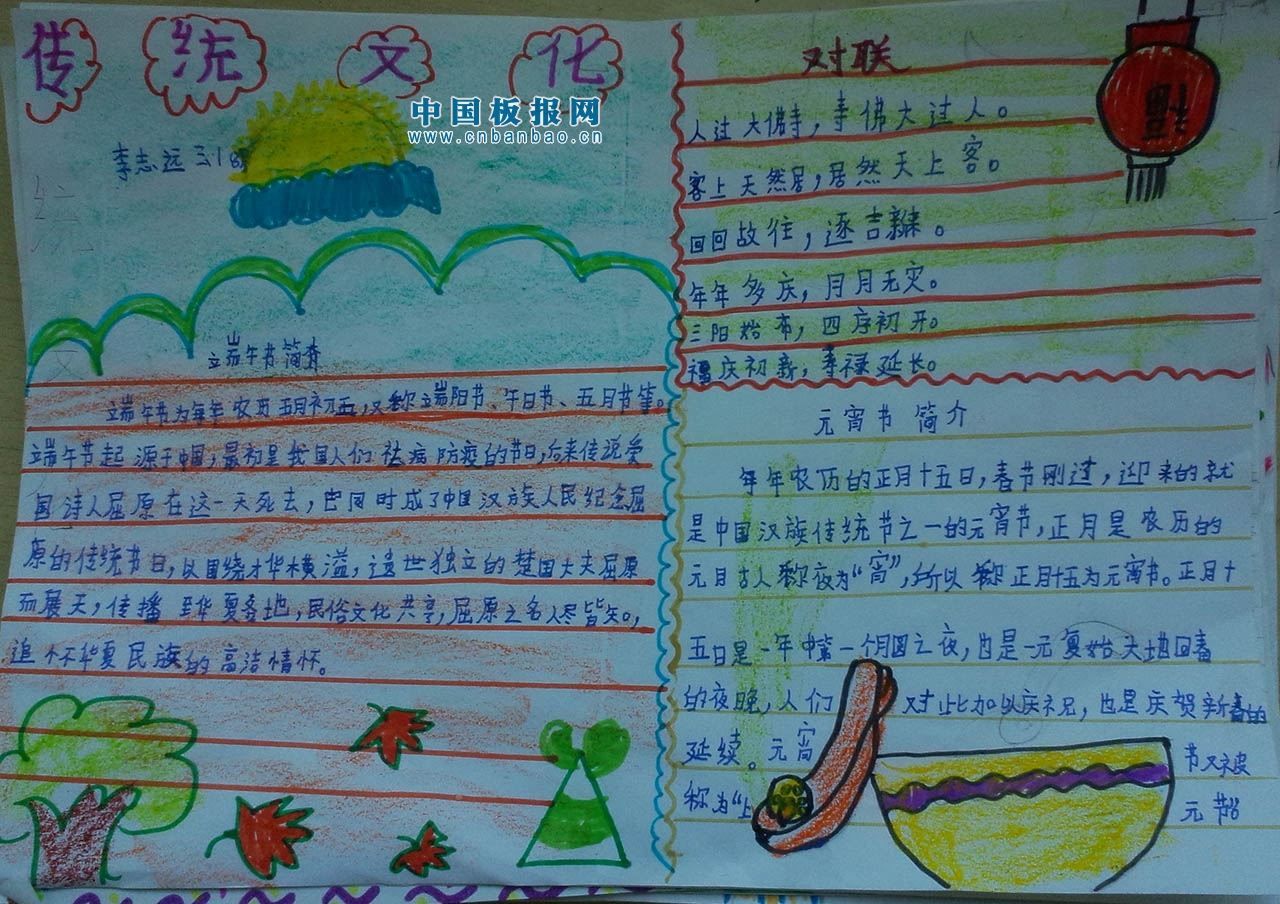 传统文化
中国板报网
www.cnbanbao.cn
李志远 三1
端午节简介
端午节为每年农历五月初五，又称端阳节、午日节、五月节等。
端午节起源于中国，最初是我国人们祛病防疫的节日，后来传说爱
国诗人屈原在这一天死去，也同时成了中国汉族人民纪念屈
原的传统节日，以围绕才华横溢，遗世独立的楚国大夫屈原
而展天，传播至华夏各地，民俗文化共享，屈原之名人尽皆知，
追怀华夏民族的高洁情怀。
对联
人过大佛寺，寺佛大过人。
客上天然居，居然天上客。
回回故往，逐吉新来。
年年多庆，月月无灾。
三阳始布，四序初开。
福庆初新，寿禄延长。
福
元宵节 简介
年年农历的正月十五日，春节刚过，迎来的就
是中国汉族传统节之一的元宵节，正月是农历的
元月古人称夜为“宵”，所以称正月十五为元宵节。正月十
五日是一年中第一个月圆之夜，也是一元复始大地回春
的夜晚，人们对此加以庆祝，也是庆贺新春的
延续。元宵节又被
称为“上元节”